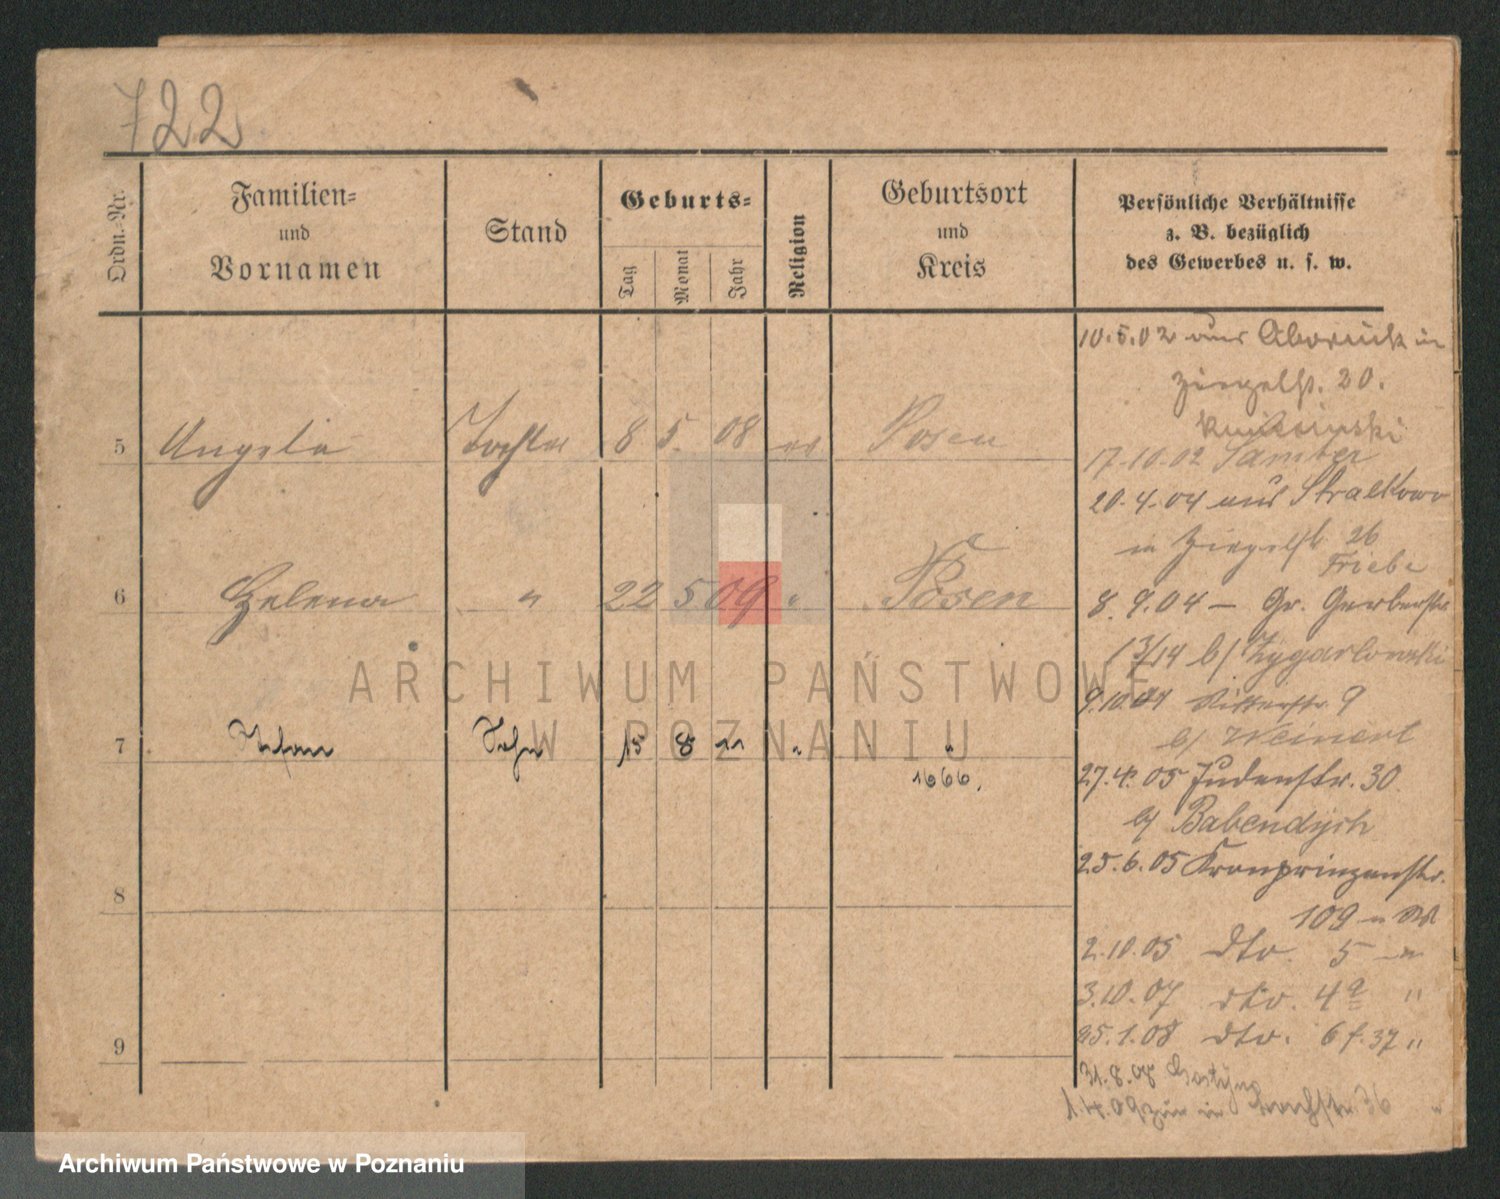 722
Ordn.-Nr.
Familien-
und
Vornamen
Stand
Geburts-
Tag
Monat
Jahr
Religion
Geburtsort
und
Kreis
Persönliche Verhältnisse
z. B. bezüglich
des Gewerbes u. s. w.
10.5.02 aus in
Ziegelstr. 20.
5 Angela Tochter 8 5. 08 Posen
17.10.02 Samter
20.4.04 aus Stralkowo
in Ziegelstr 26
Friebe
6 Helena " 22 5 09 " Posen
8.9.04 — Gr. Gerberstr
13/14 b/ Zygarlowski
9.10.04 Ritterstr. 9
b/ Weinert
7 Stefan Sohn 15 8 11 " "
1666.
27.4.05 Judenstr. 30.
b/ Babendych
25.6.05 Kronprinzenstr.
8
109
2.10.05 dto. 5
3.10.07 dto. 4a "
25.1.08 dto. 67.37 "
9
31.8.08 Gostyn
1.4.09 in 36 "
ARCHIWUM PAŃSTWOWE
W POZNANIU
Archiwum Państwowe w Poznaniu